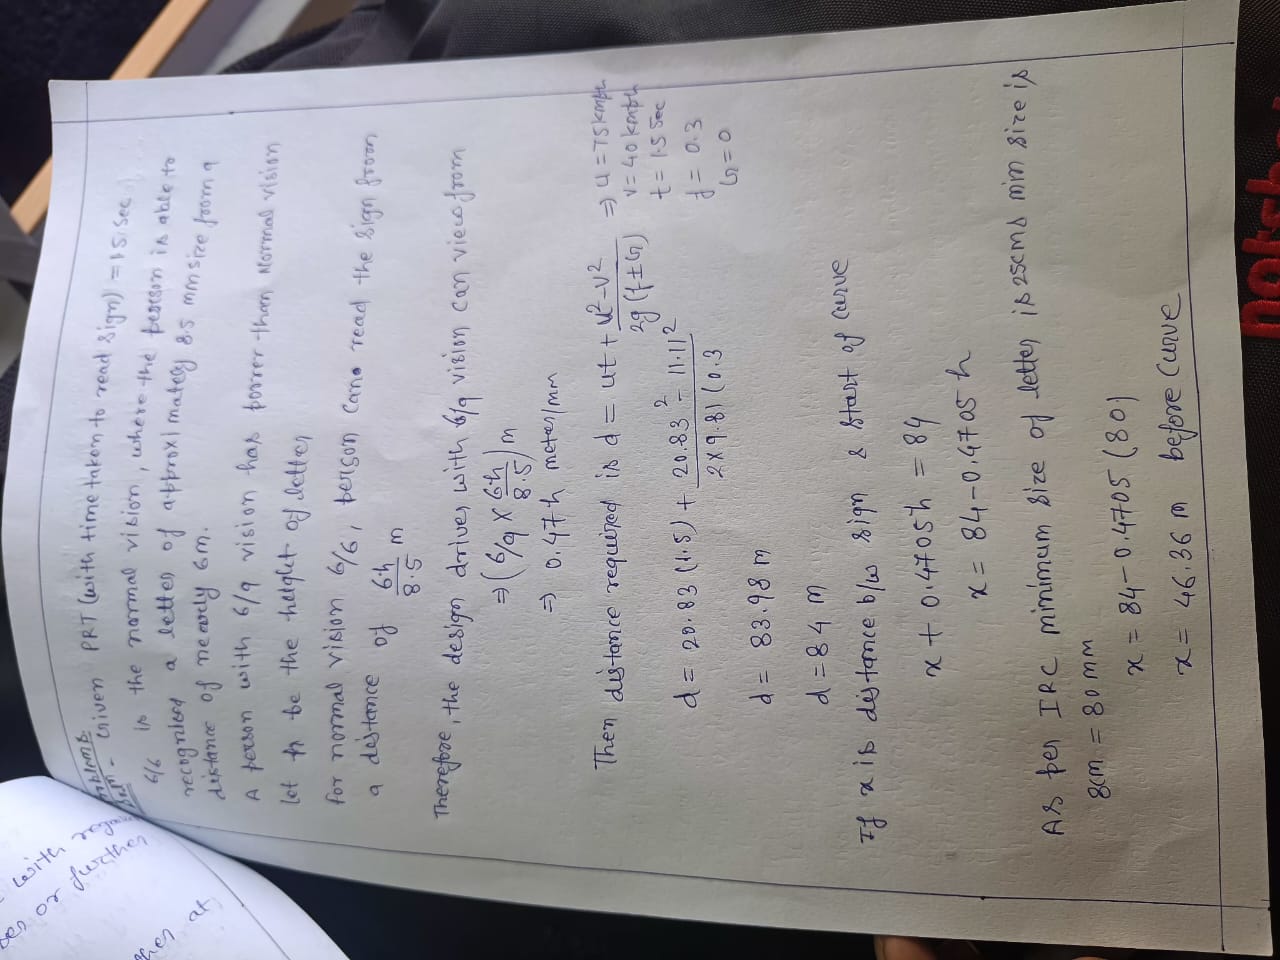 with rega
ber or further
when at
Problems
Soln - Given PRT (with time taken to read sign) = 1.5 sec
6/6 is the normal vision, where the person is able to
recognised a letter of approximately 8.5 mm size from a
distance of nearly 6m.
A person with 6/9 vision has poorer than Normal vision
let h be the height of letter
for normal vision 6/6, person can read the sign from
a distance of 6h/8.5 m
Therefore, the design driver with 6/9 vision can view from
⇒ (6/9 × 6h/8.5) m
⇒ 0.47 h meter/mm
Then distance required is d = ut + u²-v²/2g(f±G) ⇒ u = 75 kmph
v = 40 kmph
t = 1.5 sec
d = 20.83 (1.5) + 20.83² - 11.11²/2×9.81(0.3
f = 0.3
G = 0
d = 83.98 m
d = 84 m
If x is distance b/w sign & start of curve
x + 0.4705h = 84
x = 84-0.4705 h
As per IRC minimum size of letter is 25cms min size is
8cm = 80 mm
x = 84-0.4705 (80)
x = 46.36 m before curve